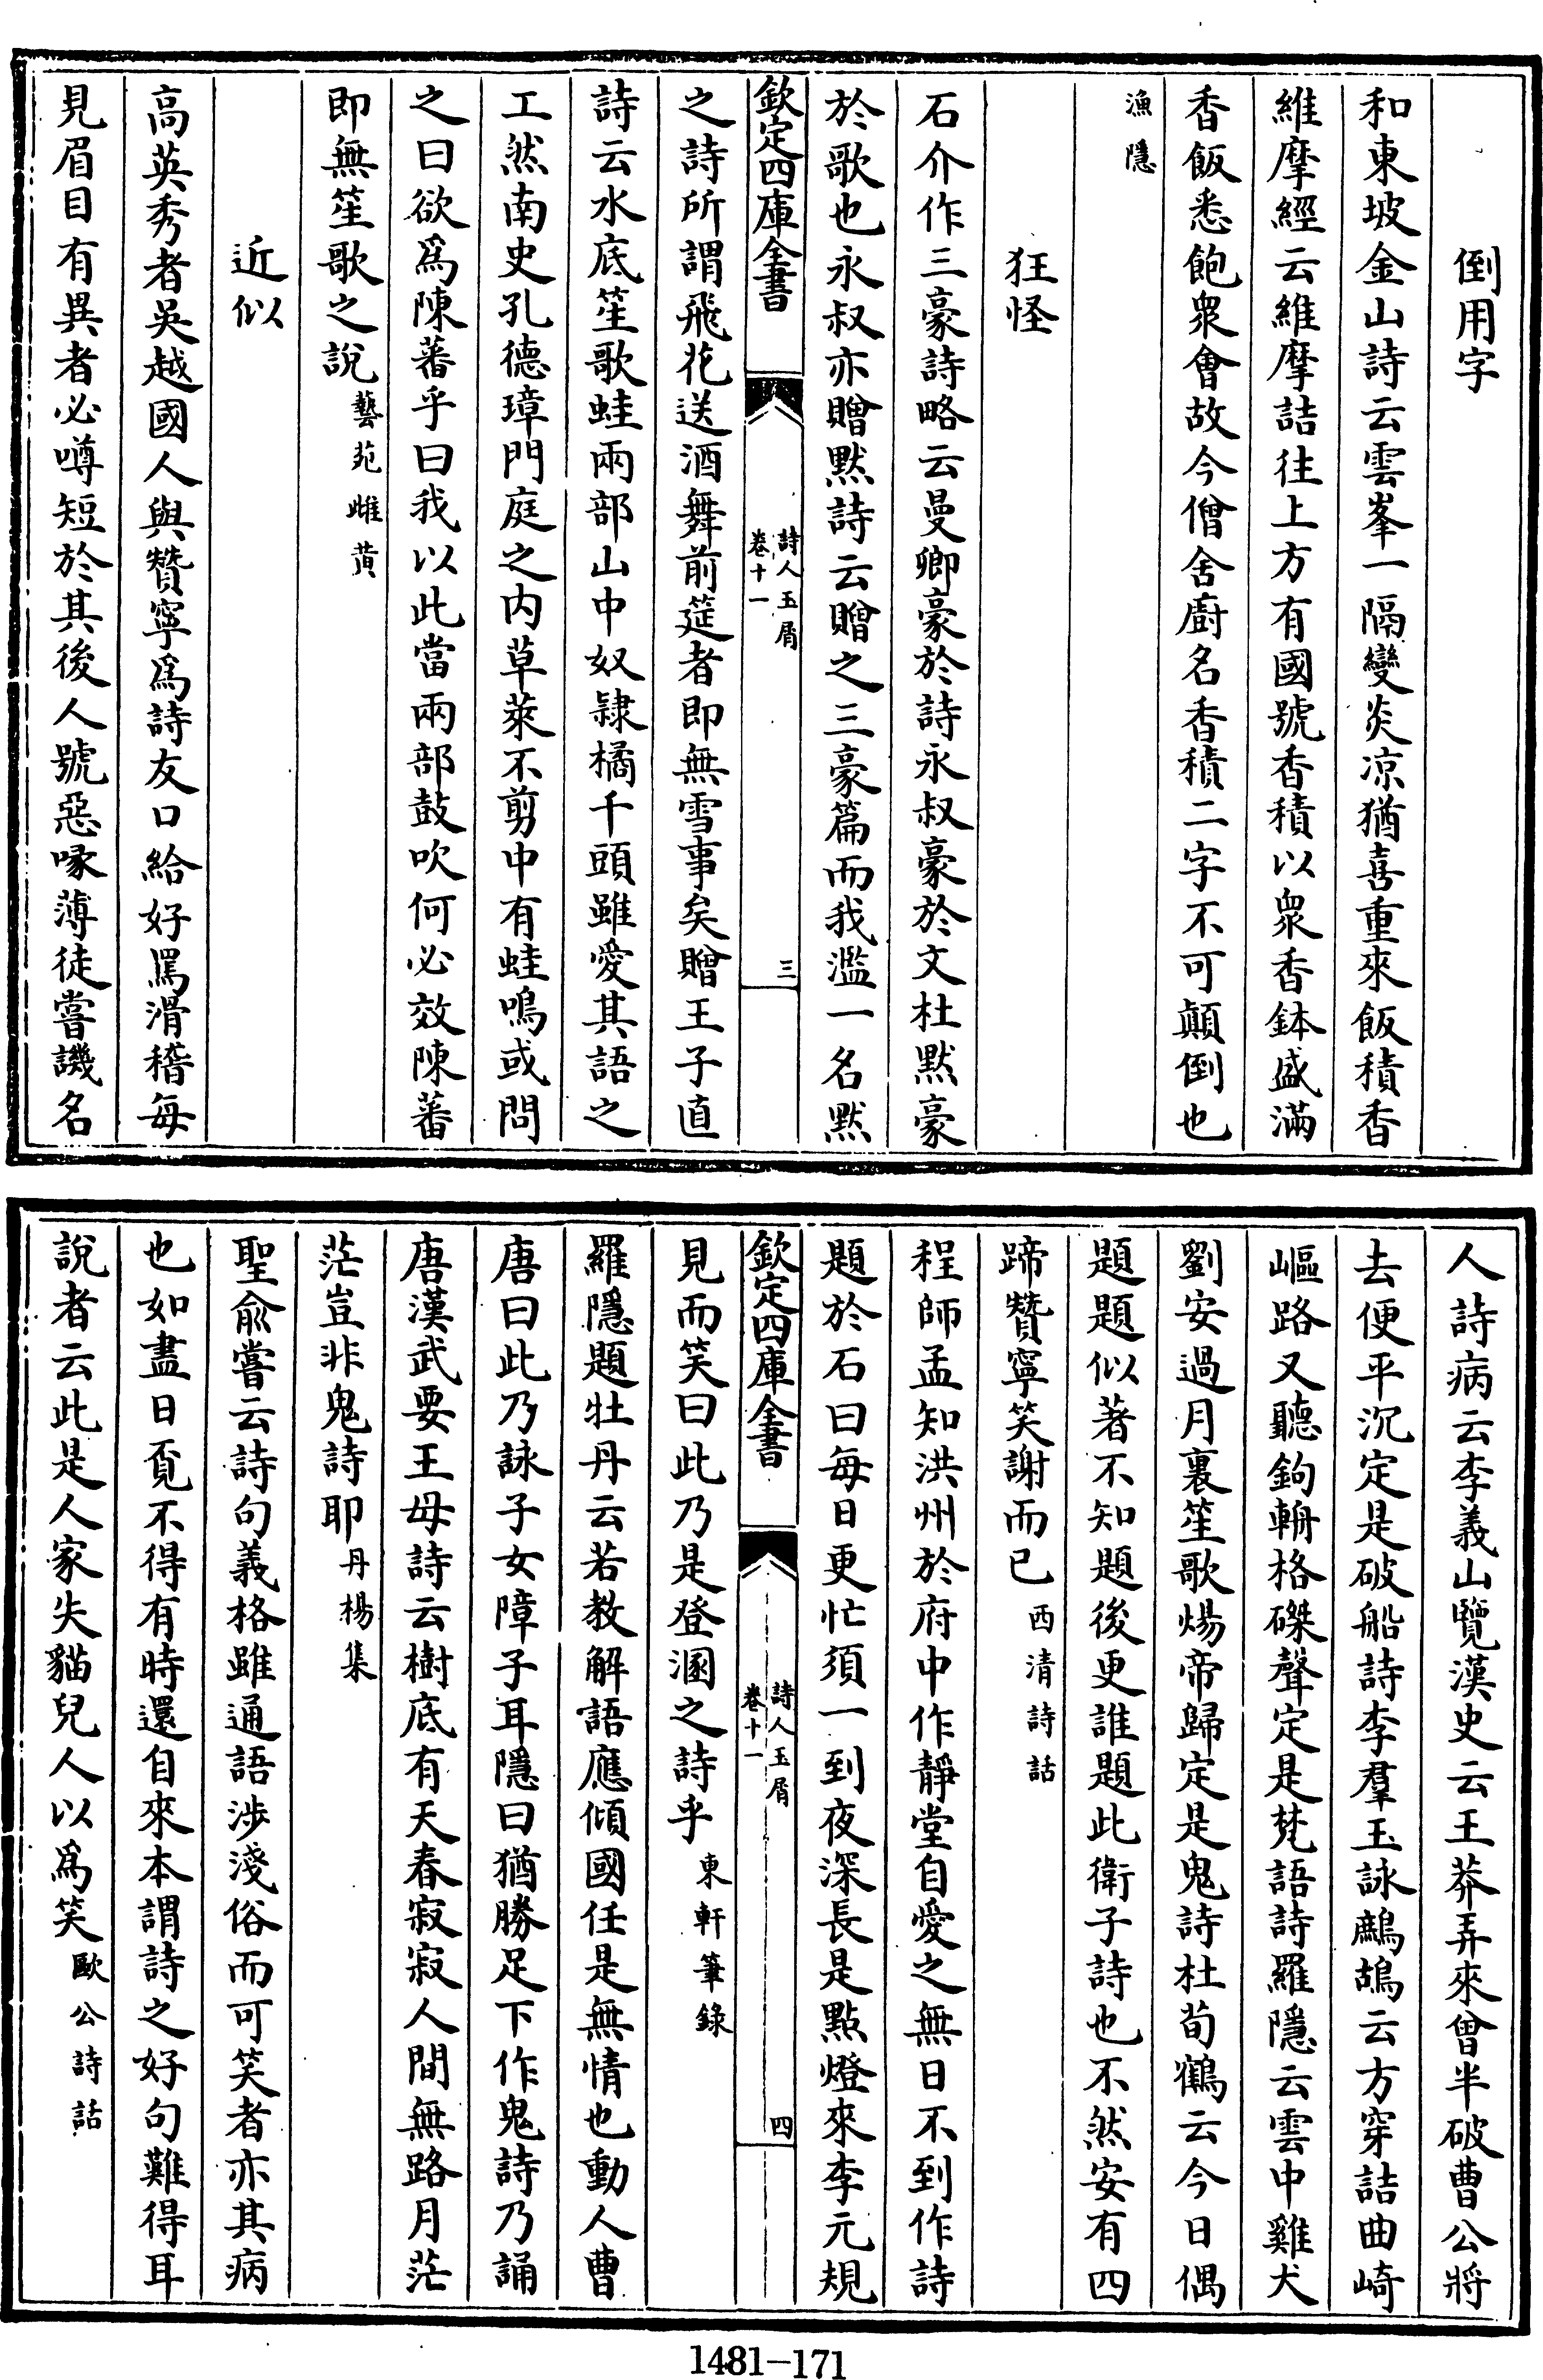 倒用字
和東坡金山詩云雲峯一隔變炎凉猶喜重來飯積香
維摩經云維摩詰往上方有國號香積以衆香鉢盛滿
香飯悉飽衆會故今僧舍廚名香積二字不可顛倒也
漁隱
狂怪
石介作三豪詩略云曼卿豪於詩永叔豪於文杜默豪
於歌也永叔亦贈默詩云贈之三豪篇而我濫一名默
欽定四庫全書
詩人玉屑
卷十一
三
之詩所謂飛花送酒舞前筵者即無雪事矣贈王子直
詩云水底笙歌蛙兩部山中奴隷橘千頭雖愛其語之
工然南史孔德璋門庭之内草萊不剪中有蛙鳴或問
之曰欲爲陳蕃乎曰我以此當兩部鼓吹何必效陳蕃
即無笙歌之說藝苑雌黄
近似
高英秀者吳越國人與贊寧爲詩友口給好罵滑稽每
見眉目有異者必噂短於其後人號惡喙薄徒嘗譏名
人詩病云李義山覽漢史云王莽弄來曾半破曹公將
去便平沉定是破船詩李羣玉詠鷓鴣云方穿詰曲崎
嶇路又聽鉤輈格磔聲定是梵語詩羅隱云雲中雞犬
劉安過月裏笙歌煬帝歸定是鬼詩杜荀鶴云今日偶
題題似著不知題後更誰題此衛子詩也不然安有四
蹄贊寧笑謝而已西清詩話
程師孟知洪州於府中作靜堂自愛之無日不到作詩
題於石曰每日更忙須一到夜深長是點燈來李元規
欽定四庫全書
詩人玉屑
卷十一
四
見而笑曰此乃是登溷之詩乎東軒筆錄
羅隱題牡丹云若教解語應傾國任是無情也動人曹
唐曰此乃詠子女障子耳隱曰猶勝足下作鬼詩乃誦
唐漢武要王母詩云樹底有天春寂寂人間無路月茫
茫豈非鬼詩耶丹楊集
聖俞嘗云詩句義格雖通語涉淺俗而可笑者亦其病
也如盡日覔不得有時還自來本謂詩之好句難得耳
說者云此是人家失貓兒人以爲笑歐公詩話
1481-171